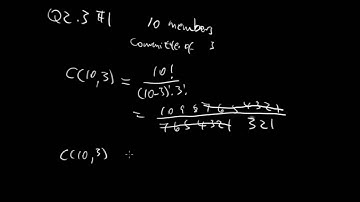 Q2.3 #1 10 members
committee of 3
C(10,3) = 10! / (10-3)! 3!
= 10 9 8 7 6 5 4 3 2 1 / 7 6 5 4 3 2 1 3 2 1
C(10,3)